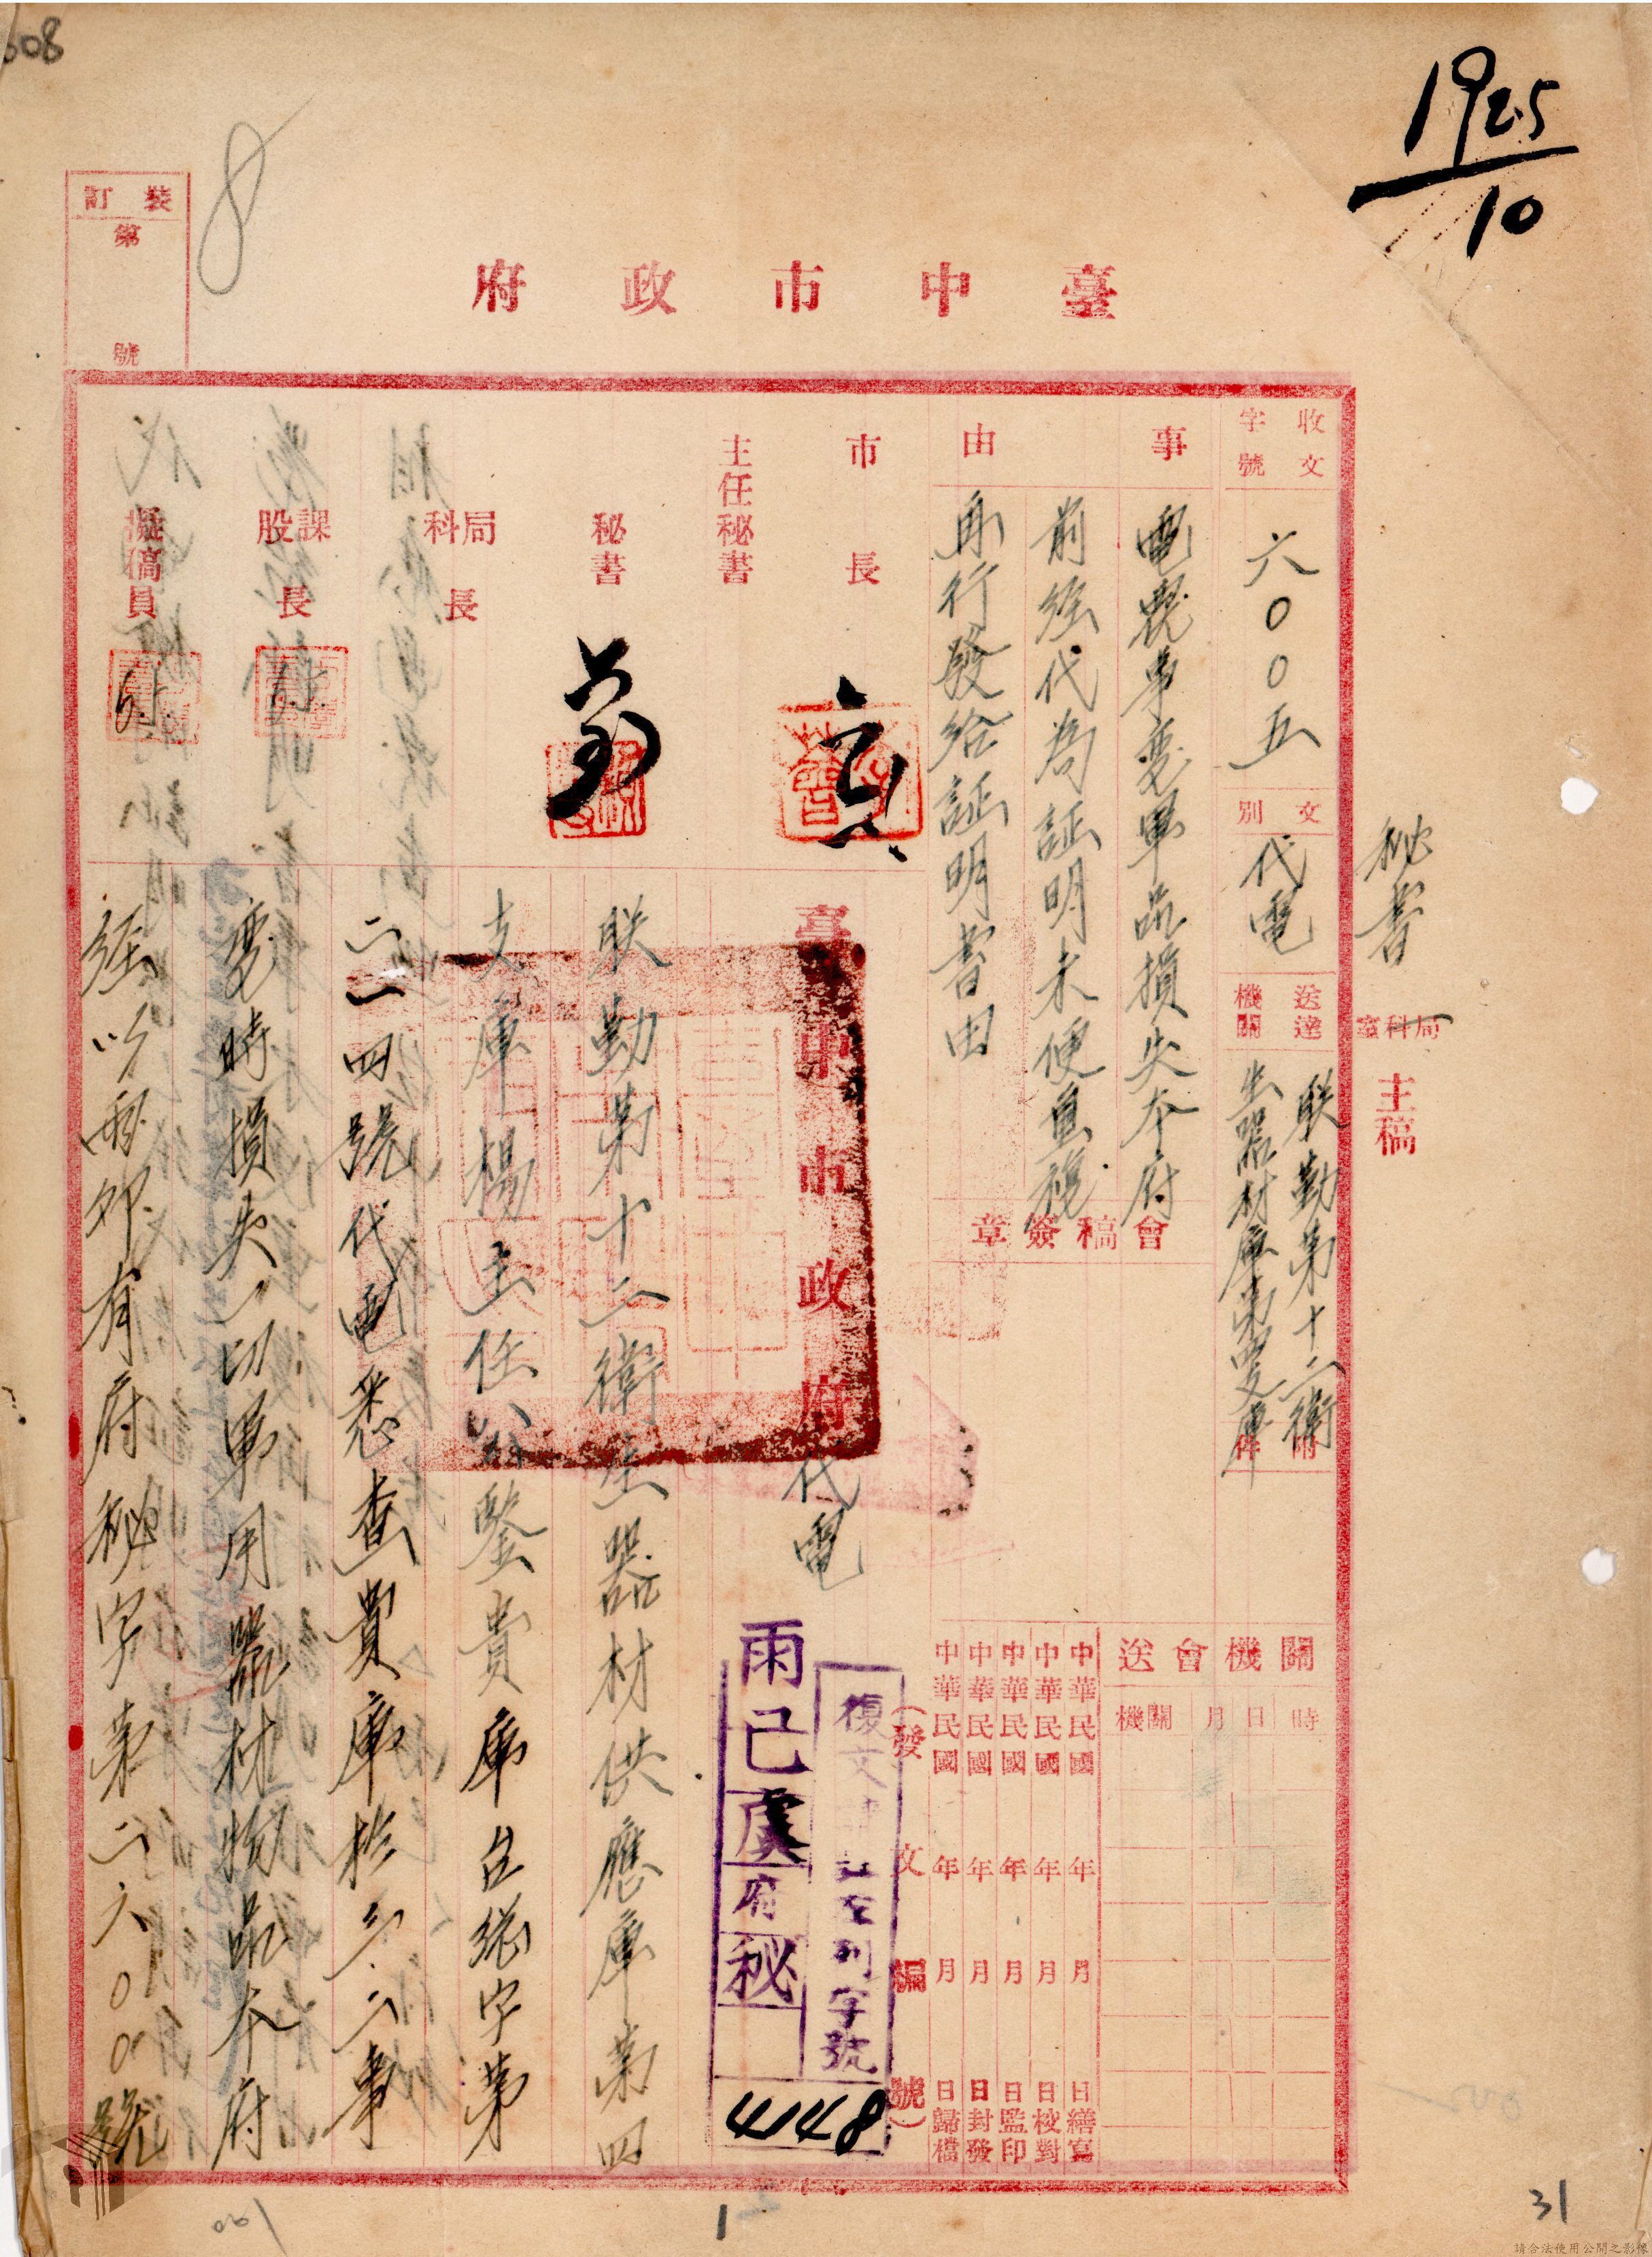 1925
10
608
8
裝訂
第
號
臺中市政府
收文
字號
六〇〇五
文別
代電
送達機關
联勤第十二衛
生器材庫第四支庫
附件
秘書
局科室
主稿
事由
電覆事變軍品損失本府
前經代為証明未便重複
再行發給証明書由
會稿簽章
市長
主任秘書
秘書
局科長
課股長
擬稿員
送會機關
機關
月
日
時
中華民國 年 月 日繕寫
中華民國 年 月 日校對
中華民國 年 月 日監印
中華民國 年 月 日封發
中華民國 年 月 日歸檔
(發文編號)
復文
列字號
雨已虞府秘
4148
臺中市政府代電
联勤第十二衛生器材供應庫第四
支庫楊主任公鑒貴庫台總字第
二一四號代電悉查貴庫於二二事
變時損失一切軍用器材物品本府
經以雨卯有府秘字第二六〇〇號
1
31
請合法使用公開之影像